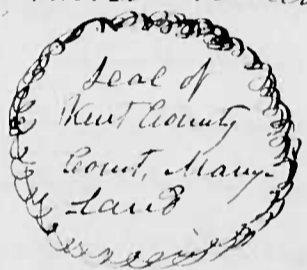 Seal of
Kent County
Court, Mary-
land